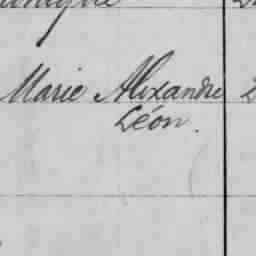 Marie Alexandre 2
Léon.